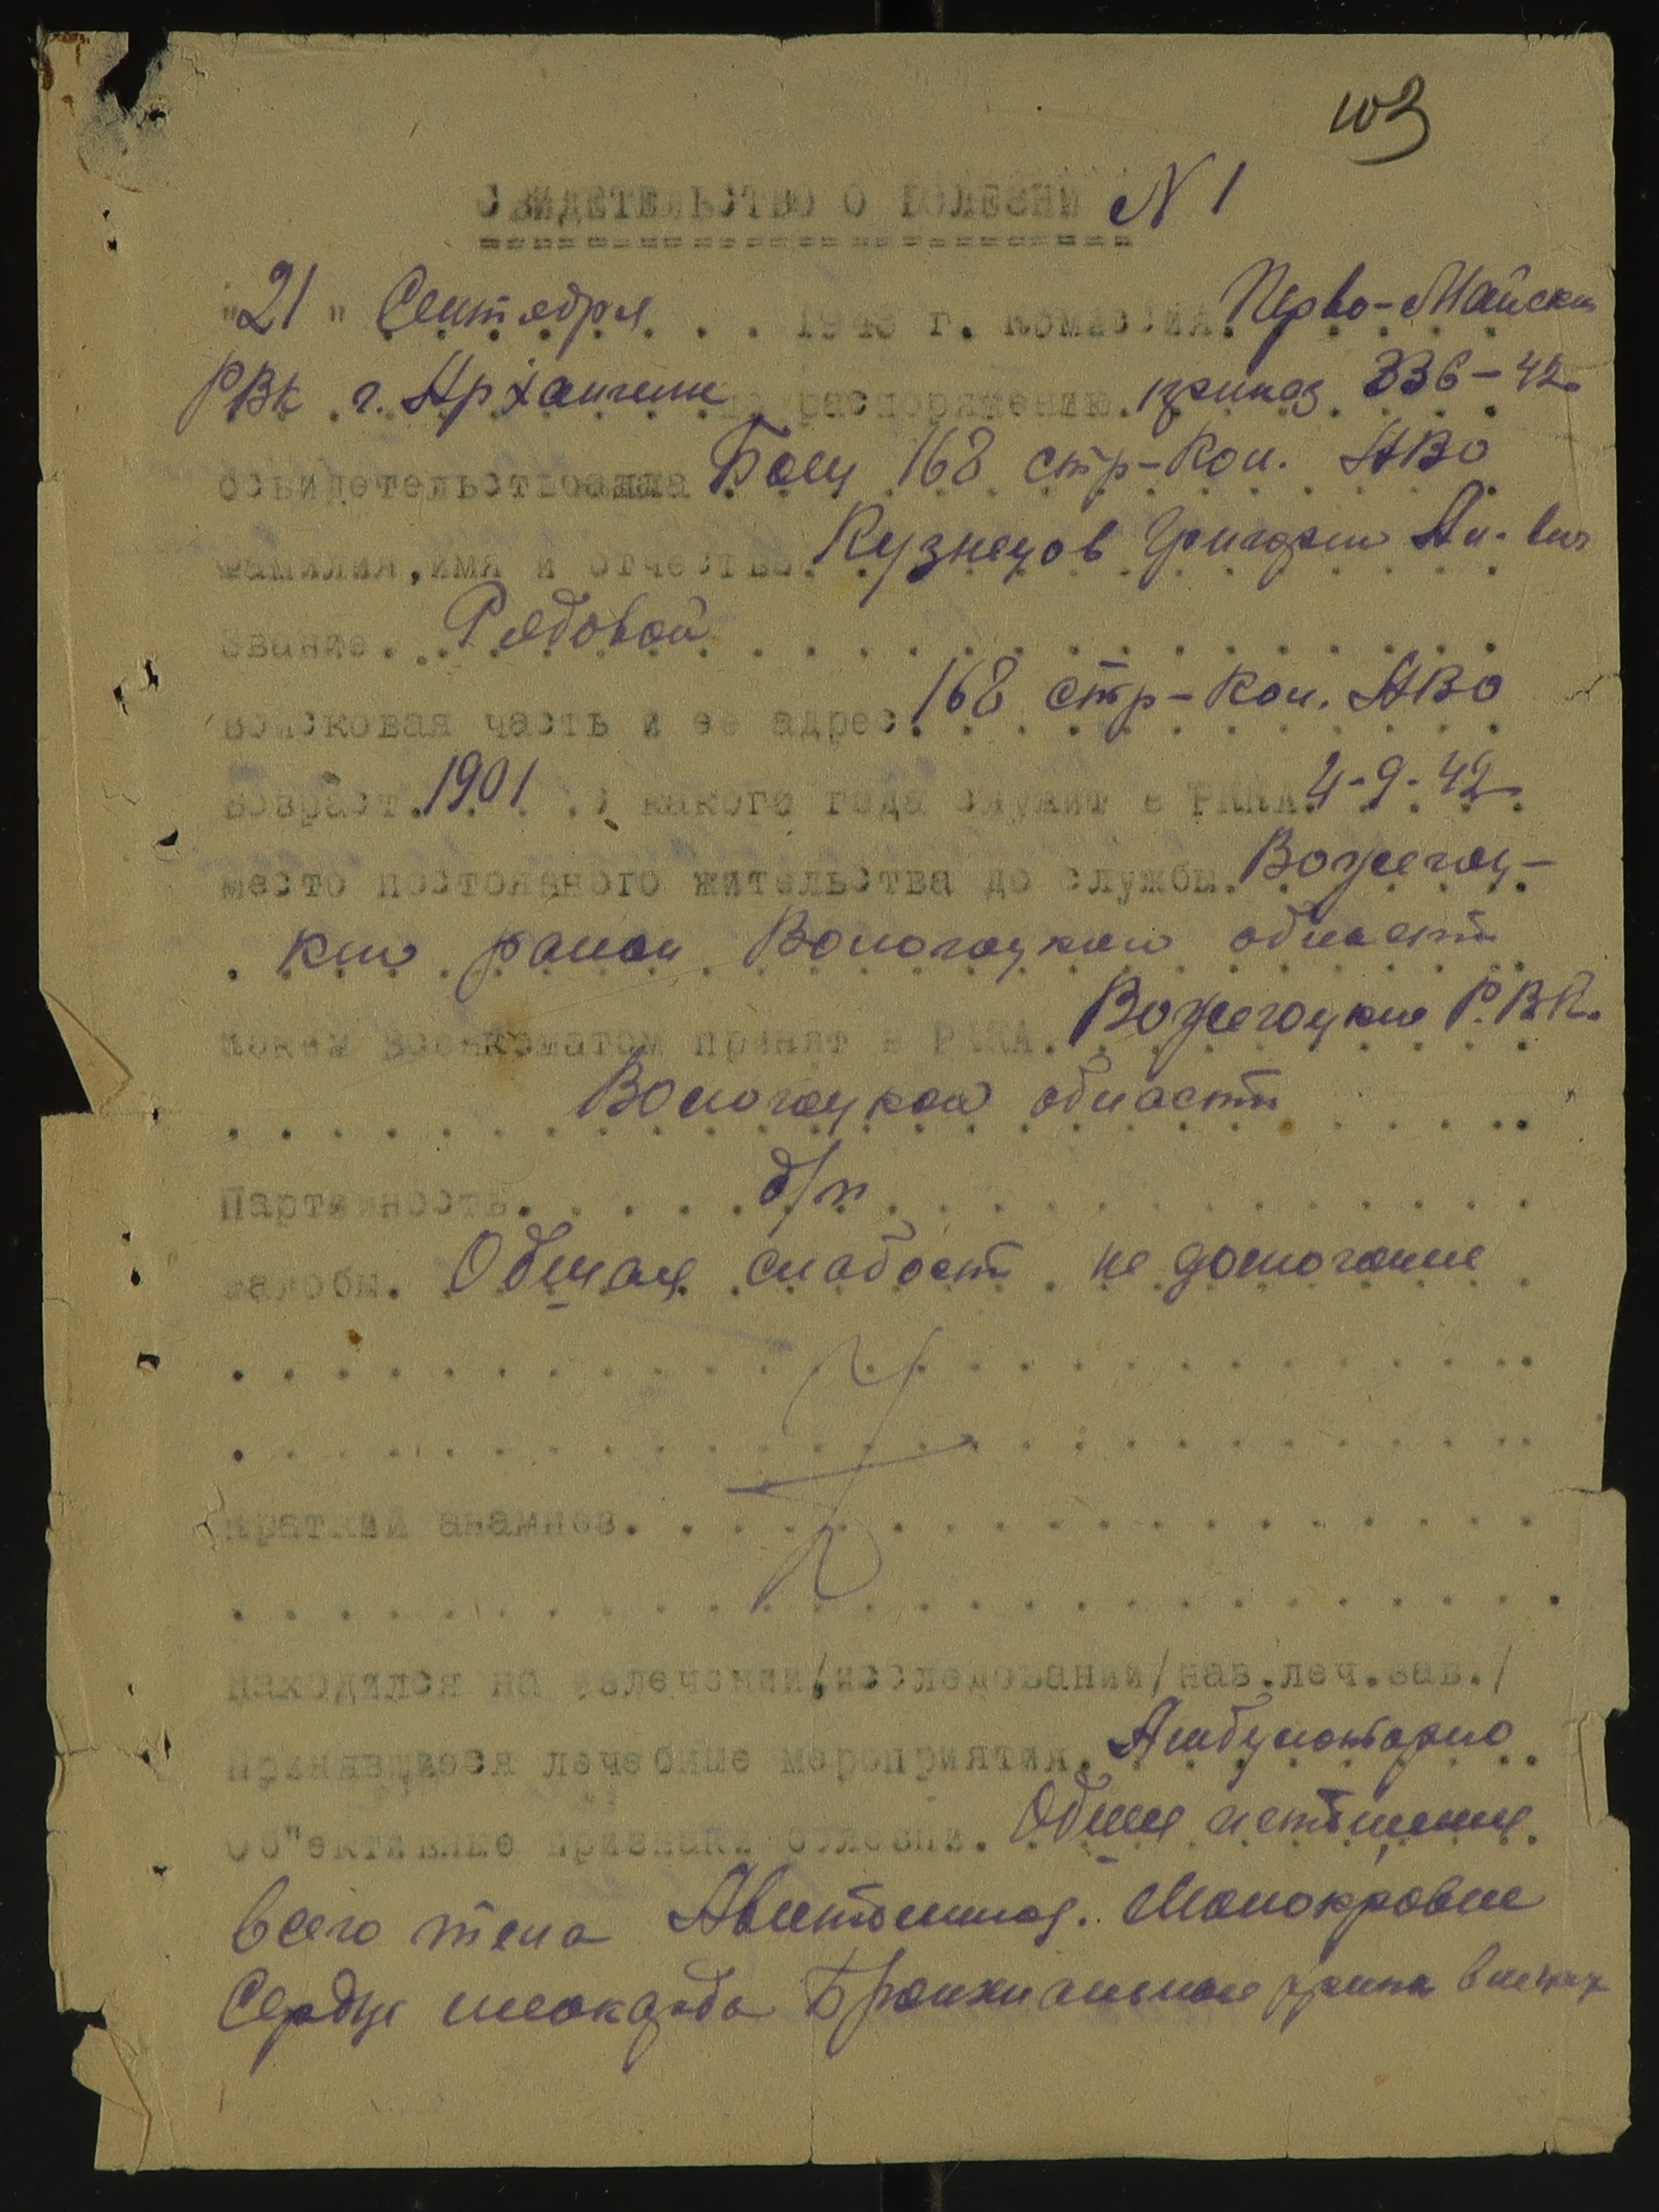 103
СВИДЕТЕЛЬСТВО О БОЛЕЗНИ N 1
"21" Сентября . . . 1943 г. комиссия. Перво-Майским
РВК г. Архангельск по распоряжению. приказ 336-42
освидетельствовала Боец 168 стр-кол. АВО
фамилия, имя и отчество. Кузнецов Григорий Ан-вич
звание. Рядовой
войсковая часть и ее адрес. 168 стр-кол. АВО
возраст. 1901 . с какого года служит в РККА. 4-9-42
место постоянного жительства до службы. Вожегоц-
кий район Вологоцкой области
каким военкоматом принят в РККА. Вожегоцкий Р.В.К.
Вологоцкой области
Партийность. б/п
жалобы. Общая слабость не домогание
краткий анамнез.
находился на излечении,/исследовании/наз.леч.зав./
Применявшиеся лечебные мероприятия. Амбулаторно
Об"ективные признаки болезни. Общее истощение
всего тела Малокровие
Сердце миокарда Бронхиальные